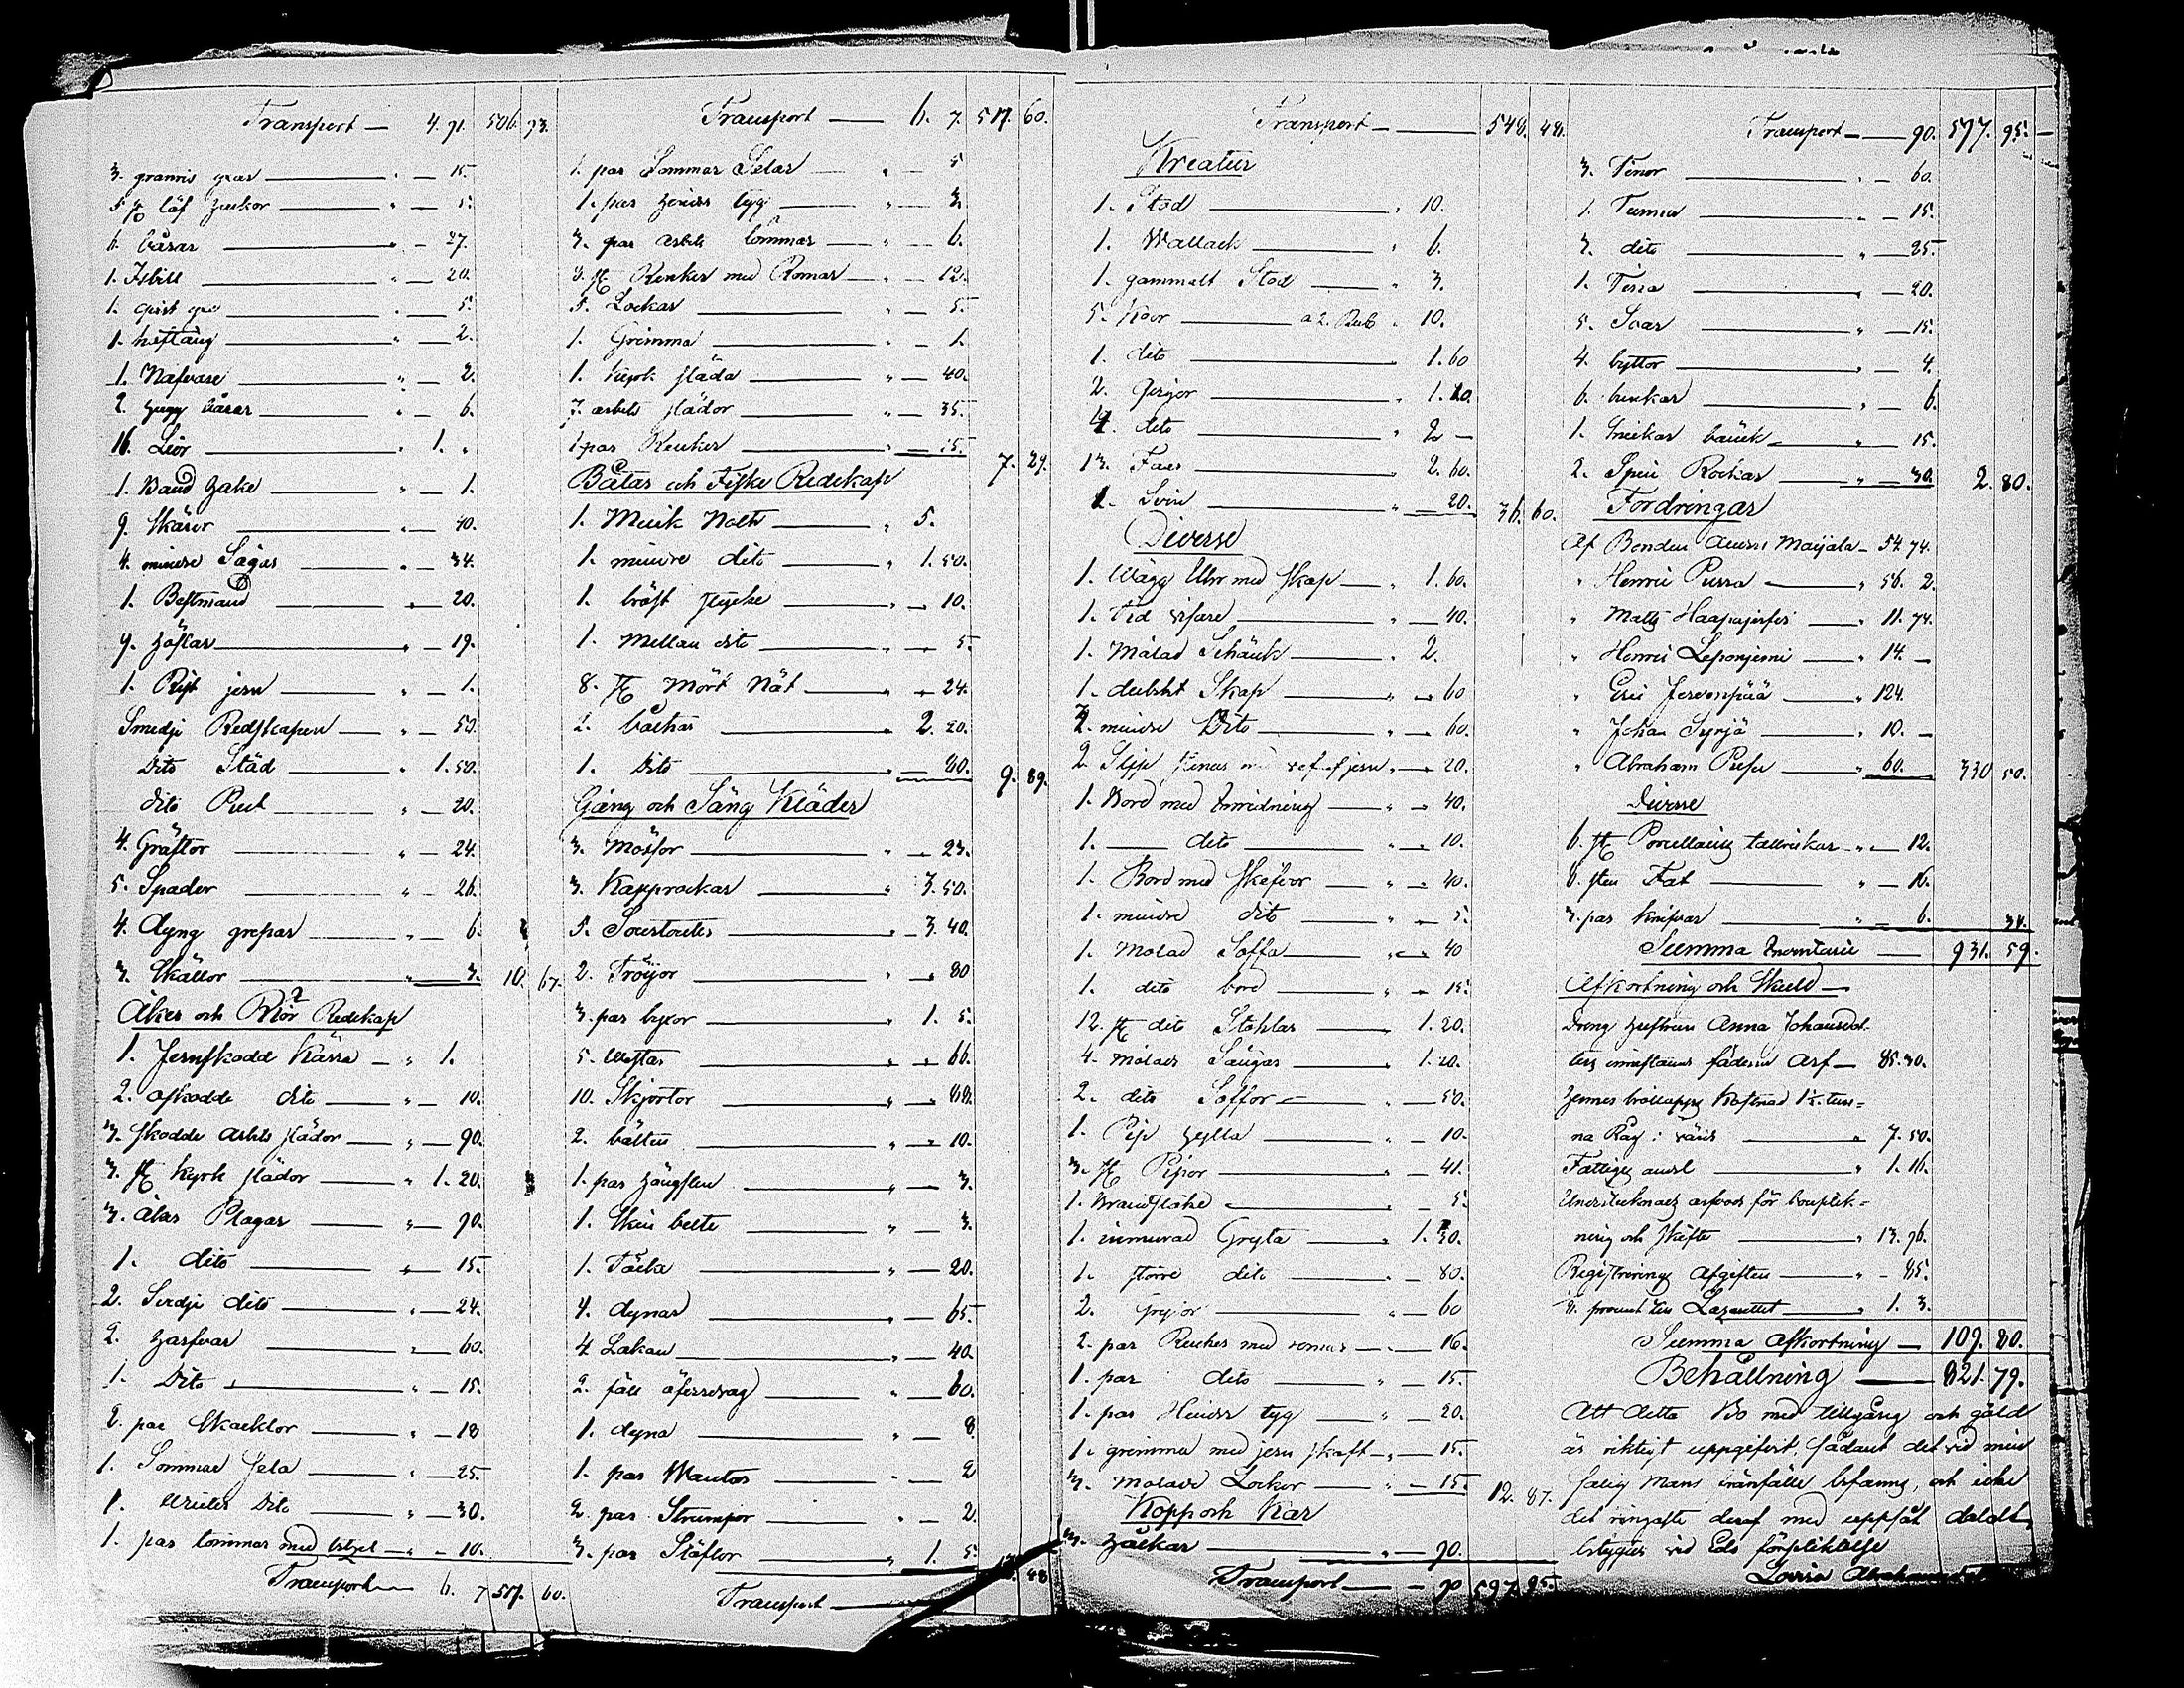 Transport — 4. 91. 506. 93.
3. granris yxor — " — 15.
5 st löf — " — 5.
6. bårar — " — 27.
1. Isbill — " — 20.
1. — " — 5.
1. häftång — " — 2.
1. Nafvare — " — 2.
2. hugg bårar — " — 6.
16. Liör — " 1. "
1. Band hake — " — 1.
9. Skäror — " — 40.
4. mindre Sågar — " — 34.
1. Bestmand — " — 20.
9. Höflar — " — 19.
1. jern — " — 1.
Smedje Redskapen — " — 50.
Dito Städ — " 1. 50.
dito Pust — " — 20.
4. Gräftor — " — 24.
5. Spador — " — 26.
4. dyng grepar — " — 6.
3. Skällor — " — 3. 10. 67.
Åker och Kör Redskap
1. Jernskodd Kärra — " 1.
2. oskodde dito — " — 10.
3. Skodde arbets slädor — " — 90.
3. st Kyrk slädor — " 1. 20.
3. åker Plogar — " — 90.
1. dito — " — 15.
2. dito — " — 24.
2. Harfvar — " — 60.
1. Dito — " — 15.
2. par Skacklor — " — 18
1. Sommar Sela — " — 25.
1. Winter Dito — " — 30.
1. par lommar med — " — 10.
Transport — 6. 7 517. 60.
Transport — 6. 7. 517. 60.
1. par Sommar Selar — " — 5
1. par tyg — " — 3.
3. par arbets lommar — " — 6.
3. st Renker med Romar — " — 12.
5. Lockar — " — 5.
1. Grimma — " — 1.
1. Kyrk släda — " — 40.
7. arbets slädor — " — 35.
1 par Renker — " — 15. 7. 29.
Båtar och Fiske Redskap
1. Muik Noth — " 5.
1. mindre dito — " 1. 50.
1. bräst stycke — " — 10.
1. Mellan dito — " — 5.
8. st Mört Nät — " — 24.
2. båtar — " 2. 20.
1. Dito — " — 80. 9. 89.
Gång och Säng Kläder
3. Mössor — " — 23.
3. Kapprockar — " 3. 50.
5. Sourtouter — " 3. 40.
2. Tröjor — " — 80
3. par byxor — " 1. 5.
5. Wästar — " — 66.
10. Skjortor — " — 88.
2. bälten — " — 10.
1. par — " — 3.
1. Skin belte — " — 3.
1. Täcke — " — 20.
4. dynar — " — 65.
4 Lakan — " — 40.
2. fäll öfverdrag — " — 60.
1. dyna — " — 8.
1. par Wantar — " — 2
2. par Strumpor — " — 2.
3. par Stöflor — " 1. 5. 48
Transport —
Transport — 548. 48.
Kreatur
1. Stod — " 10.
1. Wallack — " 6.
1. gammalt Stod — " 3.
5. Koor — a 2. Rub " 10.
1. dito — " 1. 60
2. Qvigor — " 1. 20.
4. dito — " 2 —
13. Faar — " 2. 60.
1. Svin — " — 20. 36. 60.
Diverse
1. Wägg Uhr med Skåp — " 1. 60.
1. tid visare — " — 40.
1. Målad Schänk — " 2.
1. dubbelt Skåp — " — 60
2. mindre Dito — " — 60.
2 — " — 20.
1. Bord med Inredning — " — 40.
1. — dito — " — 10.
1. Bord med Skifvor — " — 40.
1. mindre dito — " — 5.
1. Målad Soffa — " — 40
1. dito bord — " — 15.
12. st dito Stohlar — " 1. 20.
4. målade Sängar — " 1. 20.
2. dito Soffor — " — 50.
1. Pip hylla — " — 10.
3. st Pipor — " — 41.
1. Brandstake — " — 5.
1. inmurad Gryta — " 1. 30.
1. större dito — " — 80.
2. Grytor — " — 60
2. par Renker med romar — " — 16.
1. par dito — " — 15.
1. par tyg — " — 20.
1. grimma med jern skaft — " — 15.
3. Målade Lockor — " — 15. 12. 87.
Kopp och Kar
3. Såckar — " — 90.
Transport — 90 597. 95.
Transport — 90. 597. 95. —
3. Tinor — " — 60.
1. Tunna — " — 15.
3. dito — " — 25
1. Tina — " — 20.
5. Såar — " — 15.
4. byttor — " — 4.
6. bunkar — " — 6.
1. Snickar bänk — " — 15.
2. Spin Rockar — " — 30. 2. 80.
Fordringar
Af Bonden Anders Maijala — 54. 74.
" Henric Pursa — " 56. 2.
" Matts Haapajerfvi — " 11. 74.
" Henric Leponjemi — " 14. —
" Eric Jervenpää — " 124.
" Johan Syrjä — " 10. —
" Abraham — " 60. 330 50.
Diverse
6. st Porcellains tallrickar — " — 12.
8. sten Fat — " — 16.
3. par knifvar — " — 6. 34.
Summa Inventarie — 931. 59.
Afkortning och Skuld —
Dreng hustrun Anna Johansdot-
ters innestående fäderne Arf — 85. 30.
Hennes bröllopps Kostnad 1½ tun-
na Råg i värde — " 7. 50.
Fattiges andel — " 1. 16.
Undertecknads arfvod för bouptek-
ning och skifte — " 13. 96.
Registrerings Afgiften — " — 85.
8. procent till Lazarettet — " 1. 3.
Summa afkortning — 109. 80.
Behållning — 821. 79.
Att detta Bo med tillgång och gäld
är riktigt uppgifvit, sådant det vid min
salig Mans frånfälle befanns, och icke
det ringaste deraf med uppsåt doldt,
betygas vid Eds förpliktelse
Lovisa